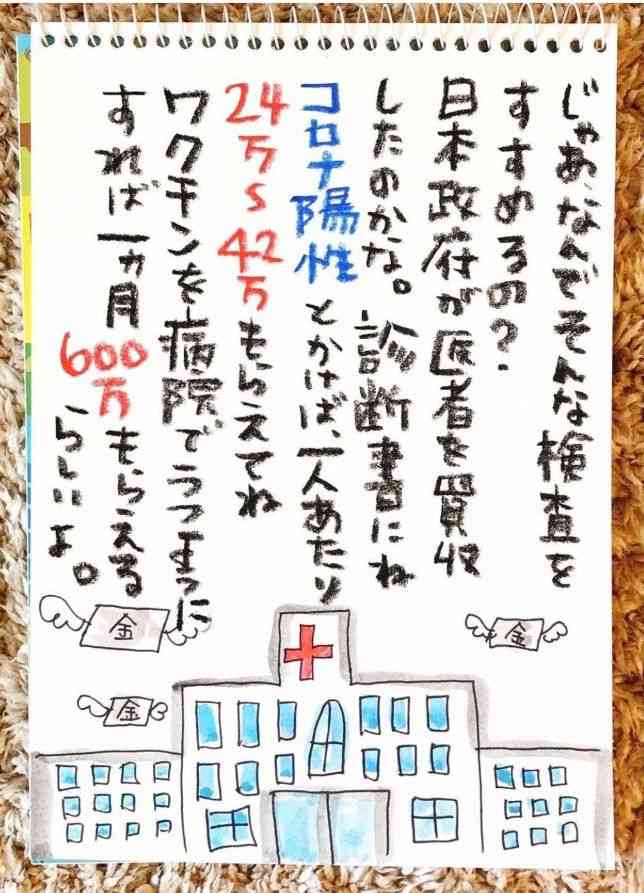 じゃあ、なんでそんな検査を
すすめるの?
日本政府が医者を買収
したのかな。診断書にね
コロナ陽性とかけば、一人あたり
24万s42万もらえてね
ワクチンを病院でうつように
すれば一ヵ月600万もらえる
らしいよ。
金
金
金